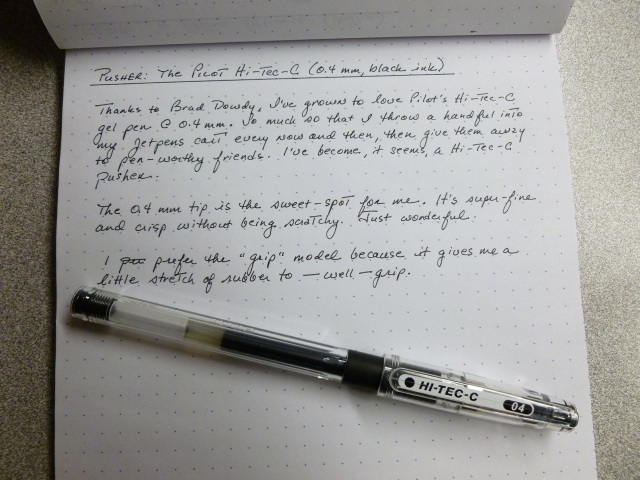 Pusher: The Pilot Hi-Tec-C (0.4 mm, black ink)
Thanks to Brad Dowdy, I've grown to love Pilot's Hi-Tec-C
gel pen @ 0.4 mm. So much so that I throw a handful into
my Jetpens cart every now and then, then give them away
to pen-worthy friends. I've become, it seems, a Hi-Tec-C
pusher.
The 0.4 mm tip is the sweet-spot for me. It's super-fine
and crisp without being scratchy. Just wonderful.
I prefer the "grip" model because it gives me a
little stretch of rubber to — well — grip.
HI-TEC-C 04